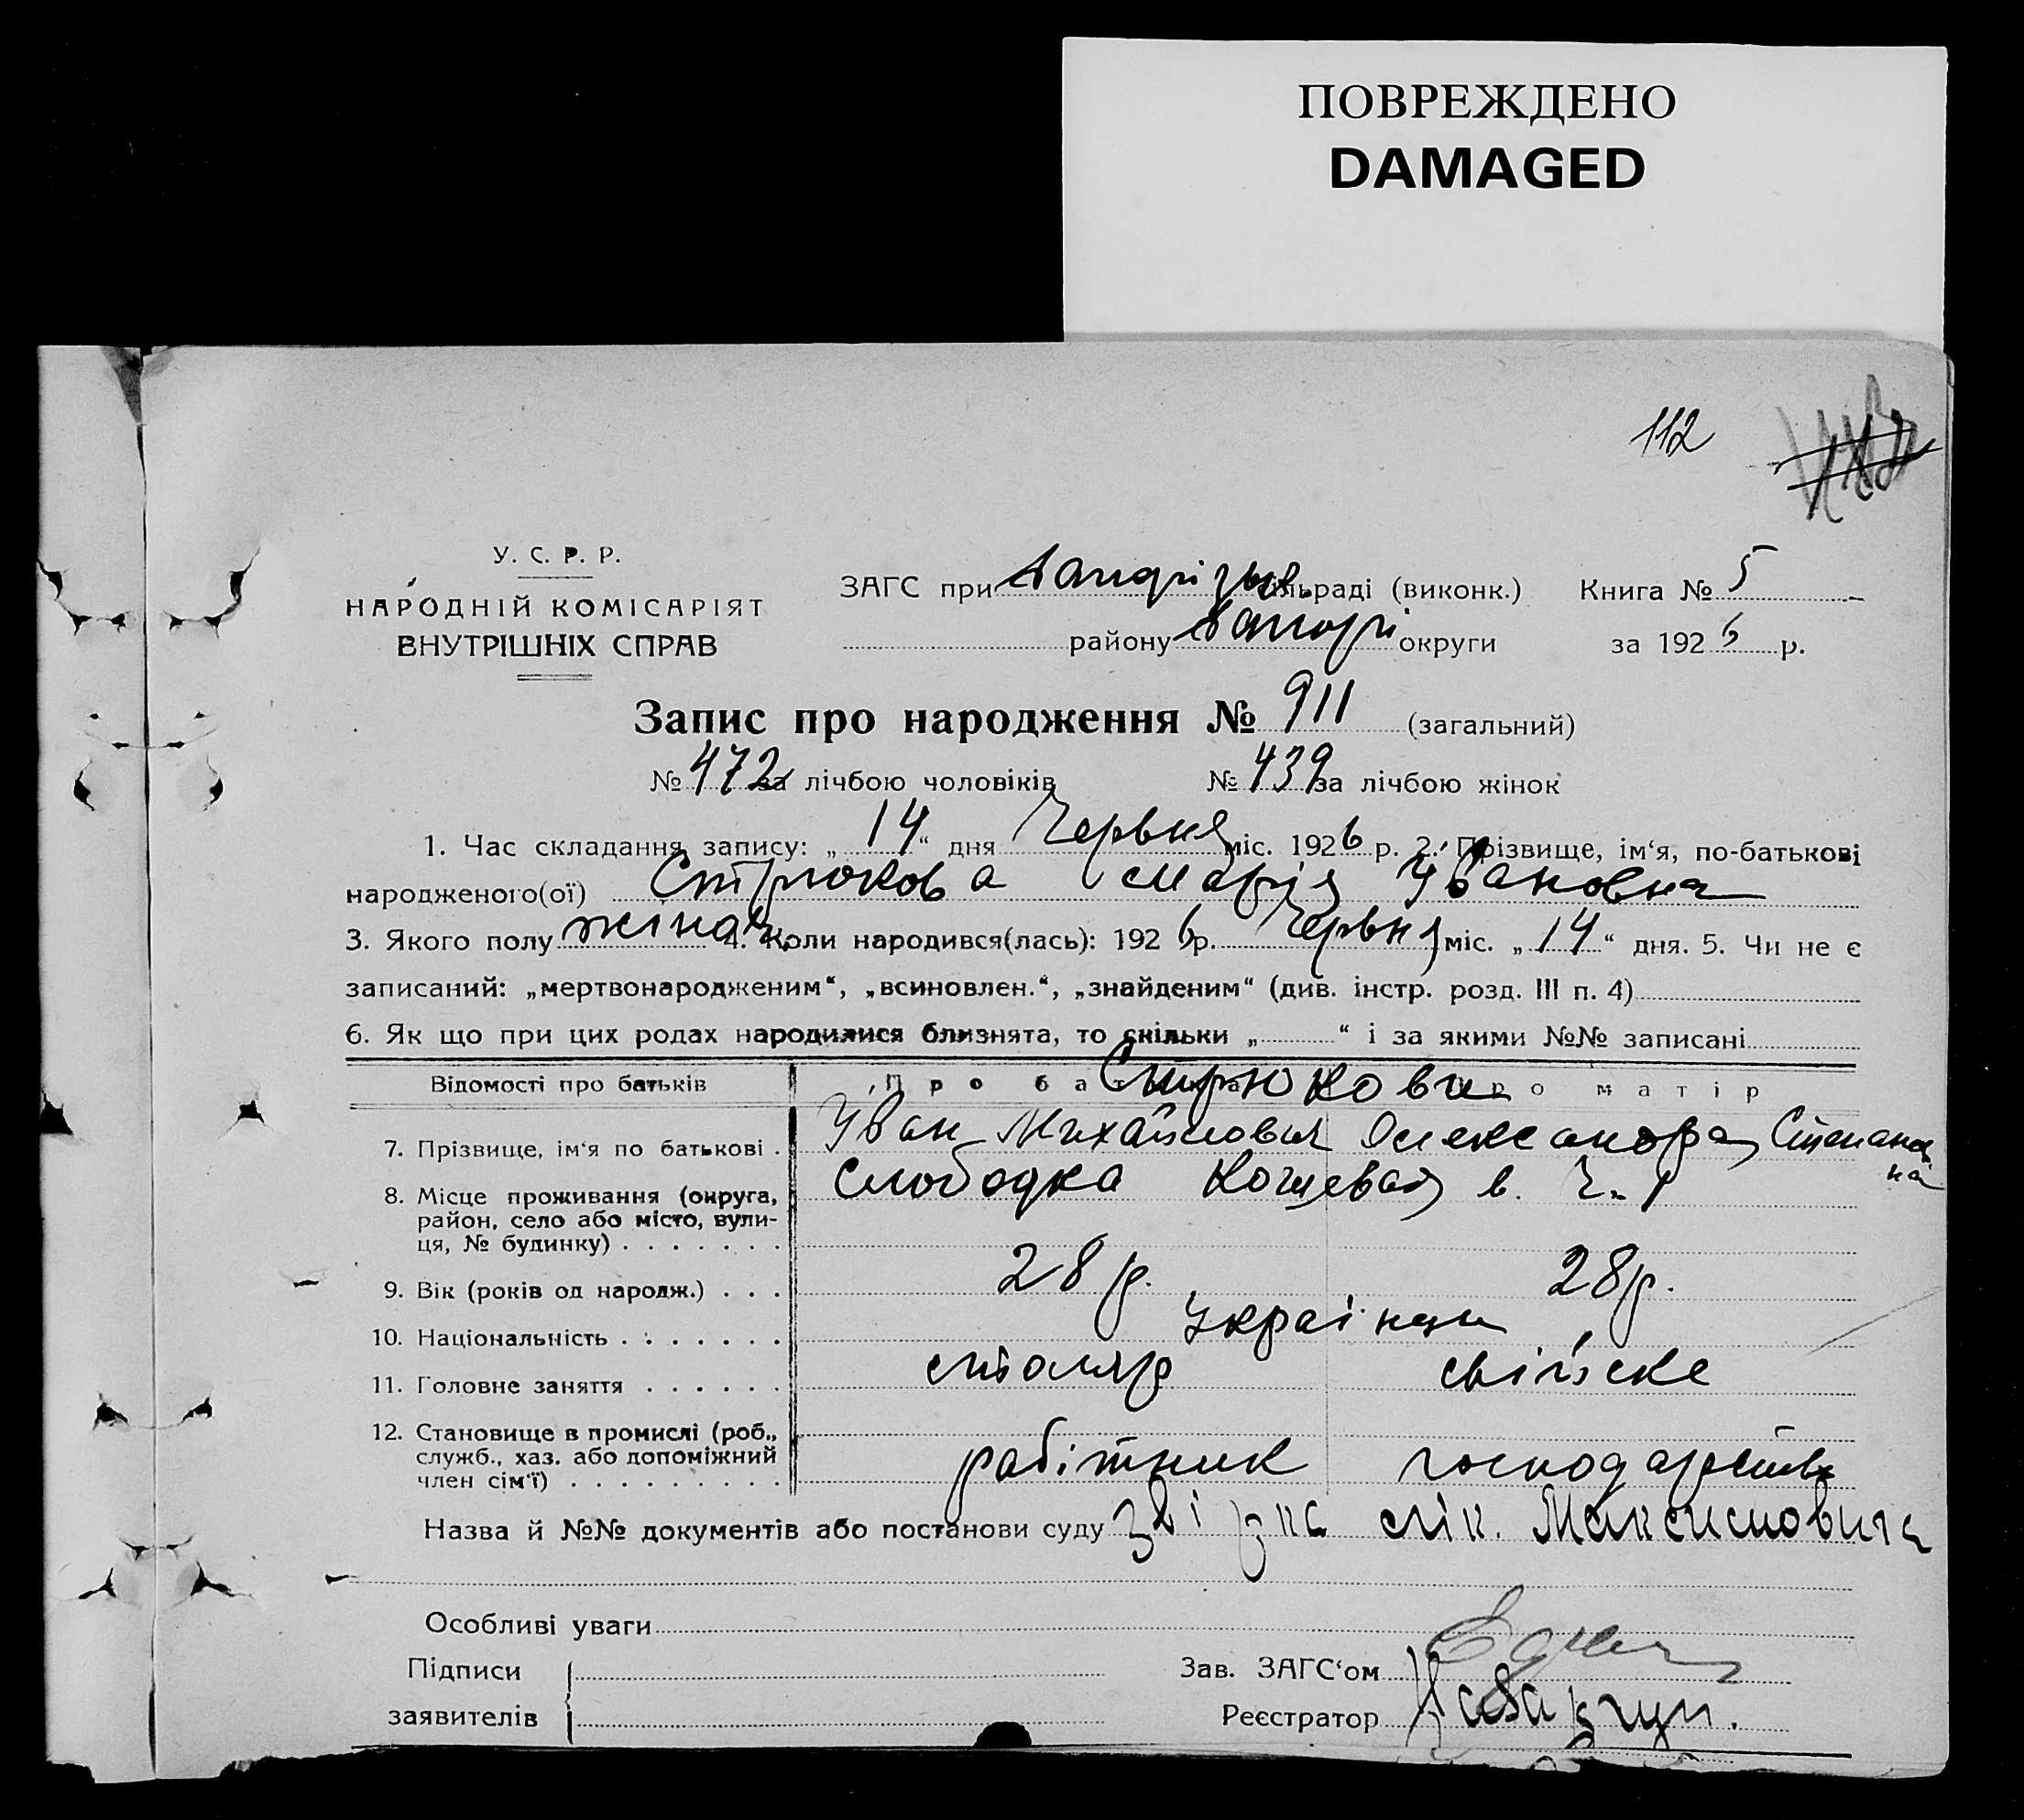 ПОВРЕЖДЕНО
DAMAGED
112
У. С. Р. Р.
НАРОДНІЙ КОМІСАРІЯТ
ВНУТРІШНІХ СПРАВ
ЗАГС при міськраді (виконк.) Книга № 5
району Запорі округи за 1926 р.
Запис про народження № 911 (загальний)
№ 472 за лічбою чоловіків № 439 за лічбою жінок
1. Час складання запису: „14“ дня Червня міс. 1926 р. 2. Прізвище, ім‘я, по-батькові
народженого(ої) Стрюкова Марія Ивановна
3. Якого полу жіноч. 4. Коли народився(лась): 1926 р. Червня міс. „14“ дня. 5. Чи не є
записаний: „мертвонародженим“, „всиновлен.“, „знайденим“ (див. інстр. розд. III п. 4)
6. Як що при цих родах народилися близнята, то скільки „ “ і за якими №№ записані
Відомості про батьків Про батька Про матір
Стрюкови
7. Прізвище, ім‘я по батькові . Иван Михайлович Олександра Степанов
на
8. Місце проживання (округа, Слободка Кочцевая в. Ч. 1
район, село або місто, вули-
ця, № будинку) . . . . . . .
9. Вік (років од народж.) . . . 28 р. 28 р.
10. Національність . . . . . . . Українци
11. Головне заняття . . . . . . столяр свійске
12. Становище в промислі (роб.,
служб., хаз. або допоміжний
член сім‘ї) . . . . . . . . . рабітник господарство
Назва й №№ документів або постанови суду лік. Максимовича
Особливі уваги
Підписи
заявителів
Зав. ЗАГС‘ом
Реєстратор